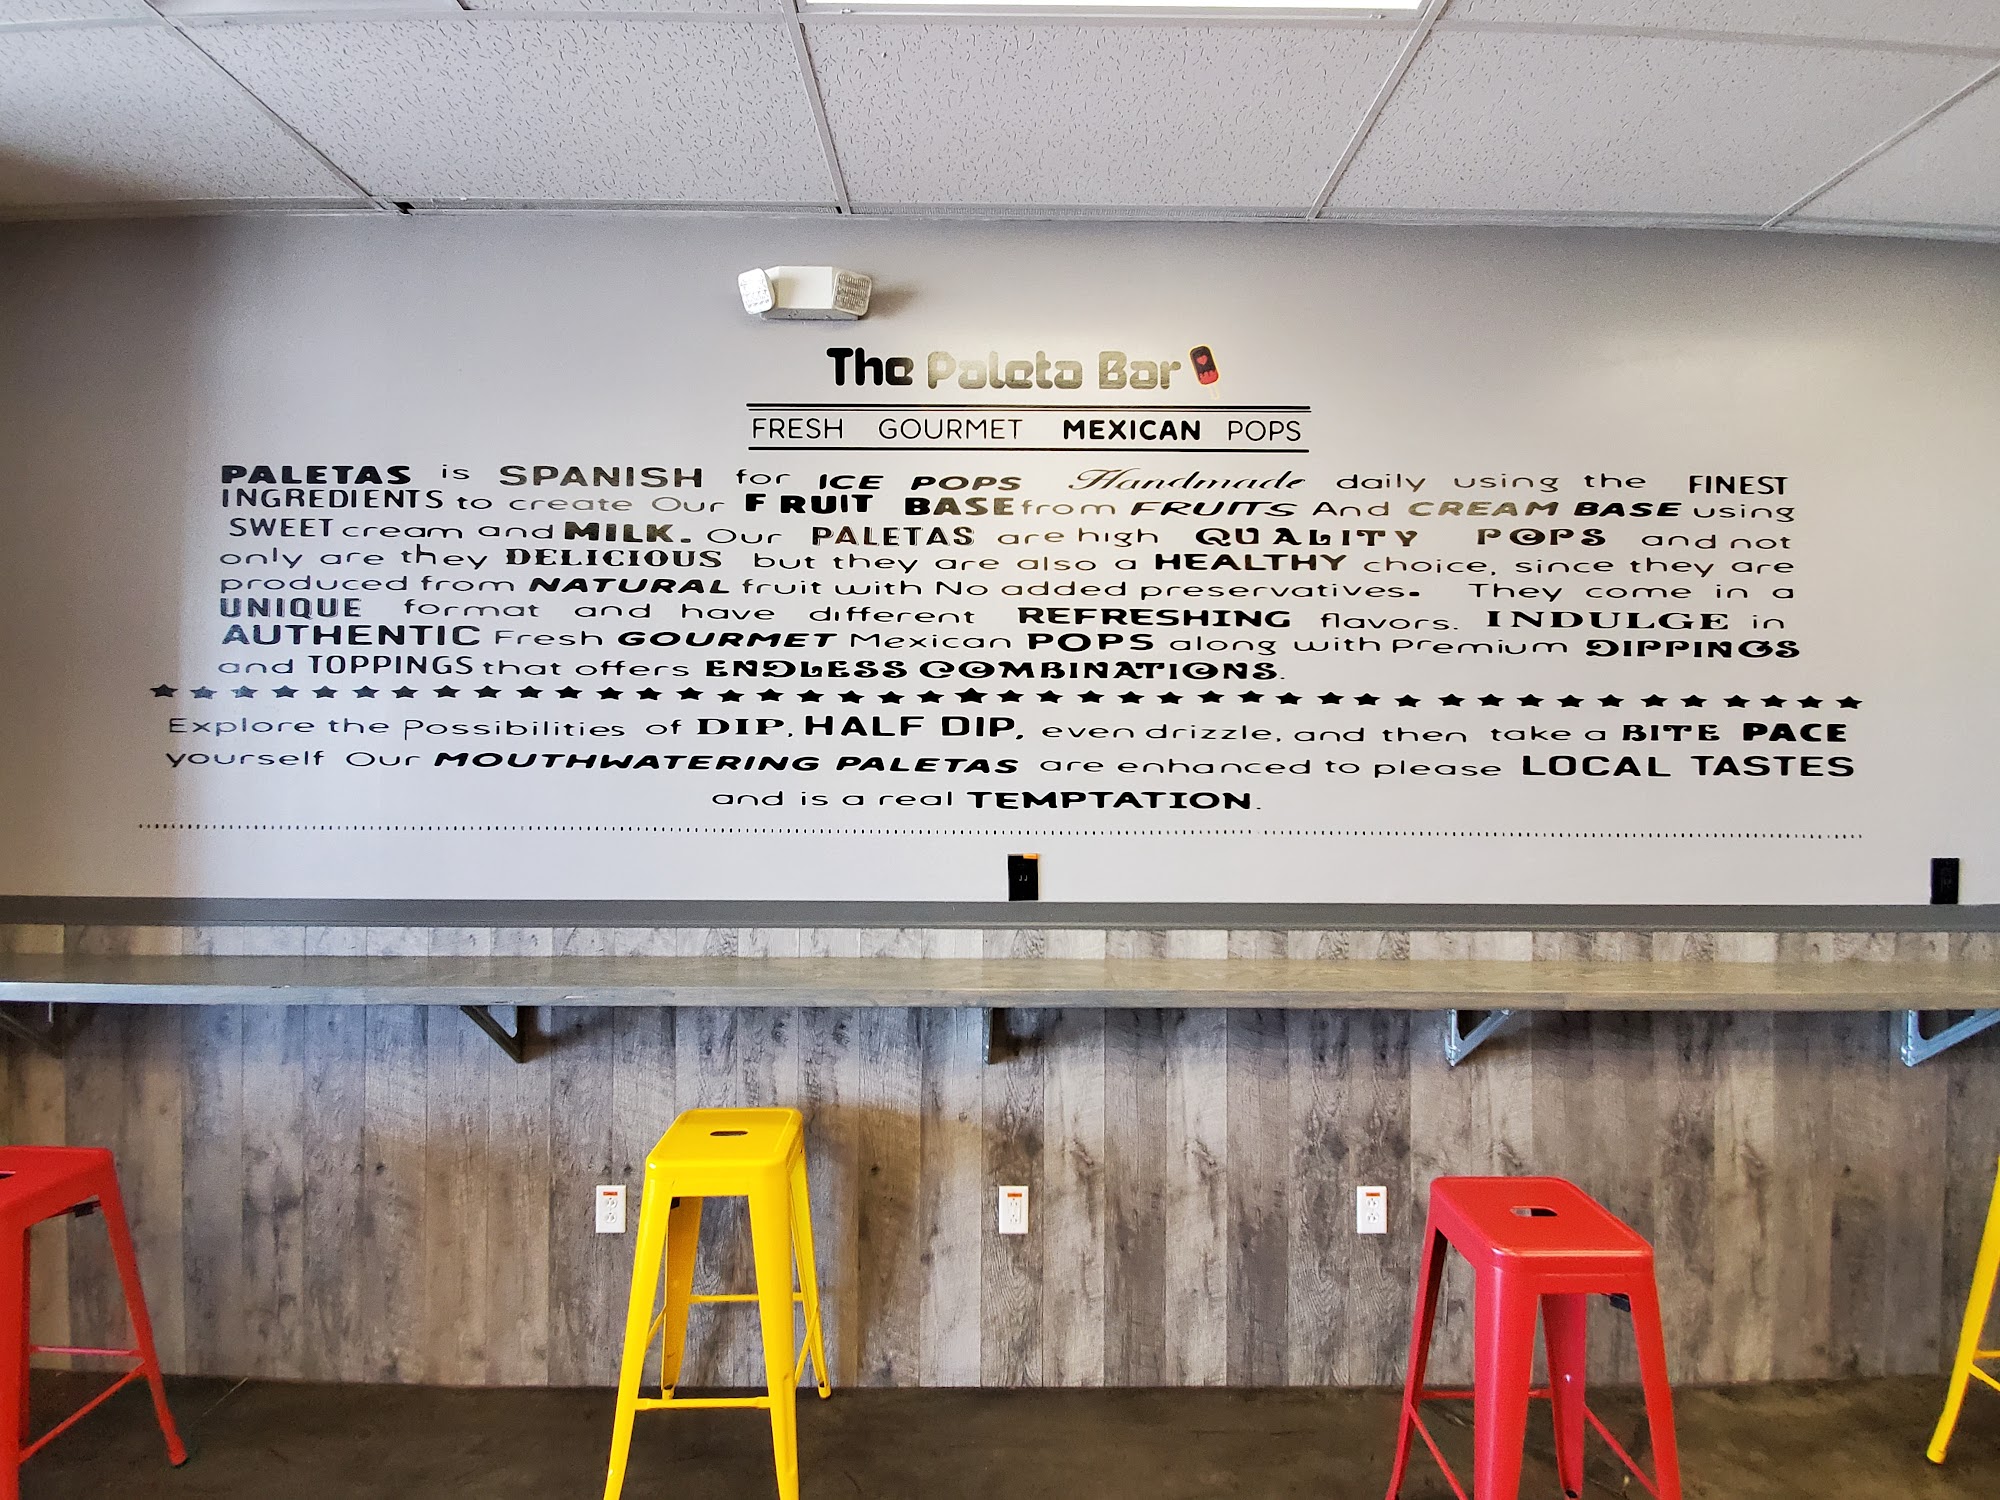 The Paleta Bar
FRESH GOURMET MEXICAN POPS
PALETAS is SPANISH for ICE POPS Handmade daily using the FINEST
INGREDIENTS to create Our FRUIT BASE from FRUITS And CREAM BASE using
SWEET cream and MILK. Our PALETAS are high QUALITY POPS and not
only are they DELICIOUS but they are also a HEALTHY choice, since they are
produced from NATURAL fruit with No added preservatives. They come in a
UNIQUE format and have different REFRESHING flavors. INDULGE in
AUTHENTIC Fresh GOURMET Mexican POPS along with Premium DIPPINGS
and TOPPINGS that offers ENDLESS COMBINATIONS.
Explore the Possibilities of DIP, HALF DIP, even drizzle, and then take a BITE PACE
yourself Our MOUTHWATERING PALETAS are enhanced to please LOCAL TASTES
and is a real TEMPTATION.